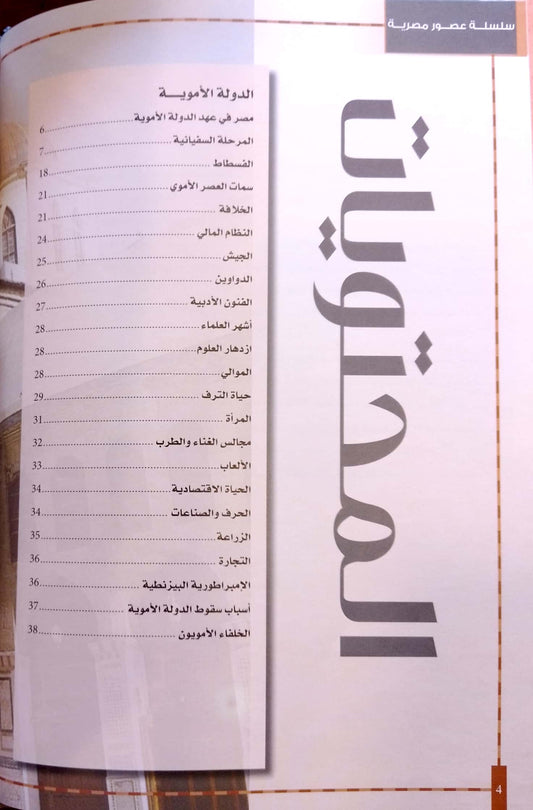 سلسلة عصور مصرية
المحتويات
الدولة الأموية
مصر في عهد الدولة الأموية 6
المرحلة السفيانية 7
الفسطاط 18
سمات العصر الأموي 21
الخلافة 21
النظام المالي 24
الجيش 25
الدواوين 26
الفنون الأدبية 27
أشهر العلماء 28
ازدهار العلوم 28
الموالي 28
حياة الترف 29
المرأة 31
مجالس الغناء والطرب 32
الألعاب 33
الحياة الاقتصادية 34
الحرف والصناعات 34
الزراعة 35
التجارة 36
الامبراطورية البيزنطية 36
أسباب سقوط الدولة الأموية 37
الخلفاء الأمويون 38
4